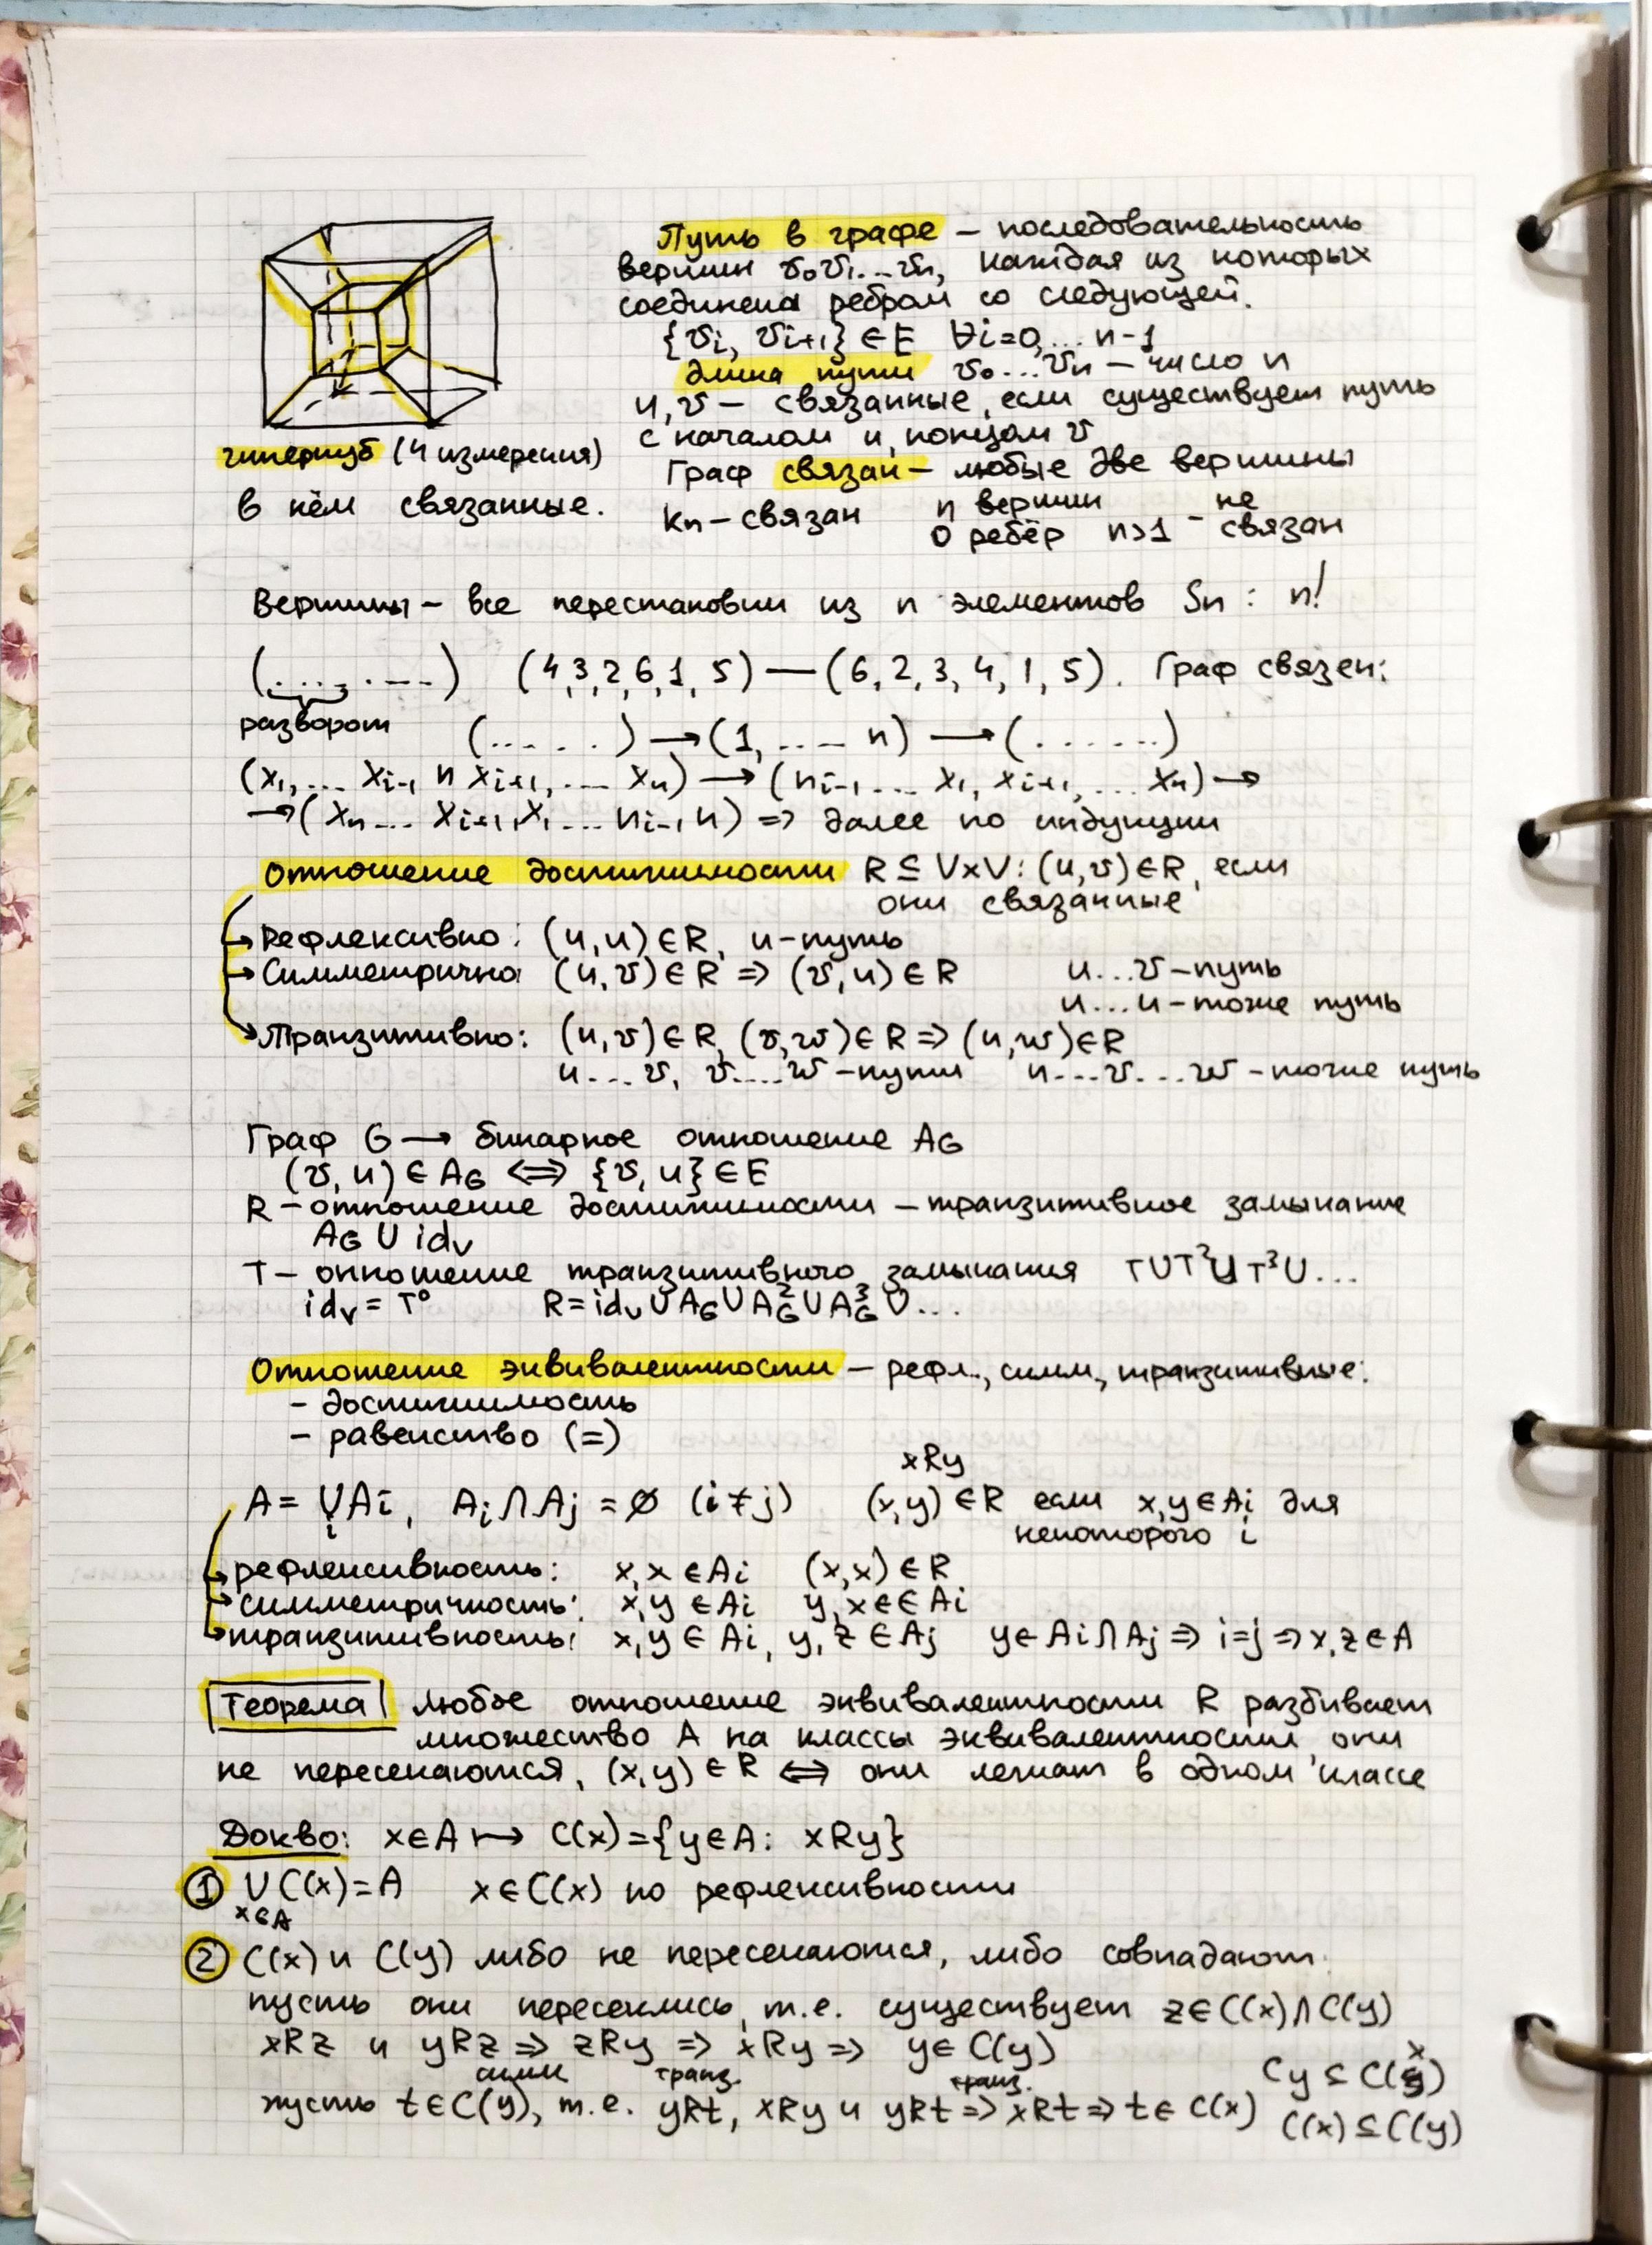 Путь в графе – последовательность
вершин v₀v₁...vₙ, каждая из которых
соединена ребром со следующей.
{vᵢ, vᵢ₊₁} ∈ E ∀i=0,... n-1
Длина пути v₀...vₙ – число n
u,v – связанные, если существует путь
с началом u, концом v
гиперкуб (4 измерения)
Граф связан – любые две вершины
в нём связанные.
Kn – связан n вершин 0 ребёр n>1 - не связан
Вершины – все перестановки из n элементов Sn : n!
(.........) (4,3,2,6,1,5) — (6,2,3,4,1,5). Граф связен:
разворот (.....) → (1,.... n) → (......)
(x₁,... xᵢ₋₁ n xᵢ₊₁,.... xₙ) → (nᵢ₋₁... x₁, xᵢ₊₁,...xₙ) →
→ (xₙ... xᵢ₊₁,x₁... nᵢ₋₁ n) => далее по индукции
Отношение достижимости R ⊆ V×V: (u,v)∈R, если
они связанные
Рефлексивно: (u,u)∈R, u-путь
Симметрично (u,v)∈R => (v,u)∈R u...v-путь
u...u-тоже путь
Транзитивно: (u,v)∈R, (v,w)∈R => (u,w)∈R
u...v, v....w-пути u...v...w-тоже путь
Граф G → бинарное отношение A_G
(v,u)∈A_G <=> {v,u}∈E
R – отношение достижимости – транзитивное замыкание
A_G ∪ id_V
T – отношение транзитивного замыкания T∪T²∪T³∪...
id_V = T⁰ R = id_V ∪ A_G ∪ A_G² ∪ A_G³ ∪...
Отношение эквивалентности – рефл., симм., транзитивные:
- достижимость
- равенство (=)
xRy
A = ∪Aᵢ, Aᵢ∩Aⱼ = ∅ (i≠j) (x,y)∈R если x,y∈Aᵢ для
i некоторого i
рефлексивность: x,x∈Aᵢ (x,x)∈R
симметричность: x,y∈Aᵢ y,x∈∈Aᵢ
транзитивность: x,y∈Aᵢ, y,z∈Aⱼ y∈Aᵢ∩Aⱼ => i=j => x,z∈A
Теорема любое отношение эквивалентности R разбивает
множество A на классы эквивалентности, они
не пересекаются, (x,y)∈R <=> они лежат в одном классе
Докво: x∈A ↦ C(x)={y∈A: xRy}
① ∪C(x)=A x∈C(x) по рефлексивности
x∈A
② C(x) и C(y) либо не пересекаются, либо совпадают.
пусть они пересеклись, т.е. существует z∈C(x)∩C(y)
xRz и yRz => zRy => xRy => y∈C(y)
симм транз. транз. Cy ⊆ C(x)
пусть t∈C(y), т.е. yRt, xRy и yRt => xRt => t∈C(x) C(x)⊆C(y)